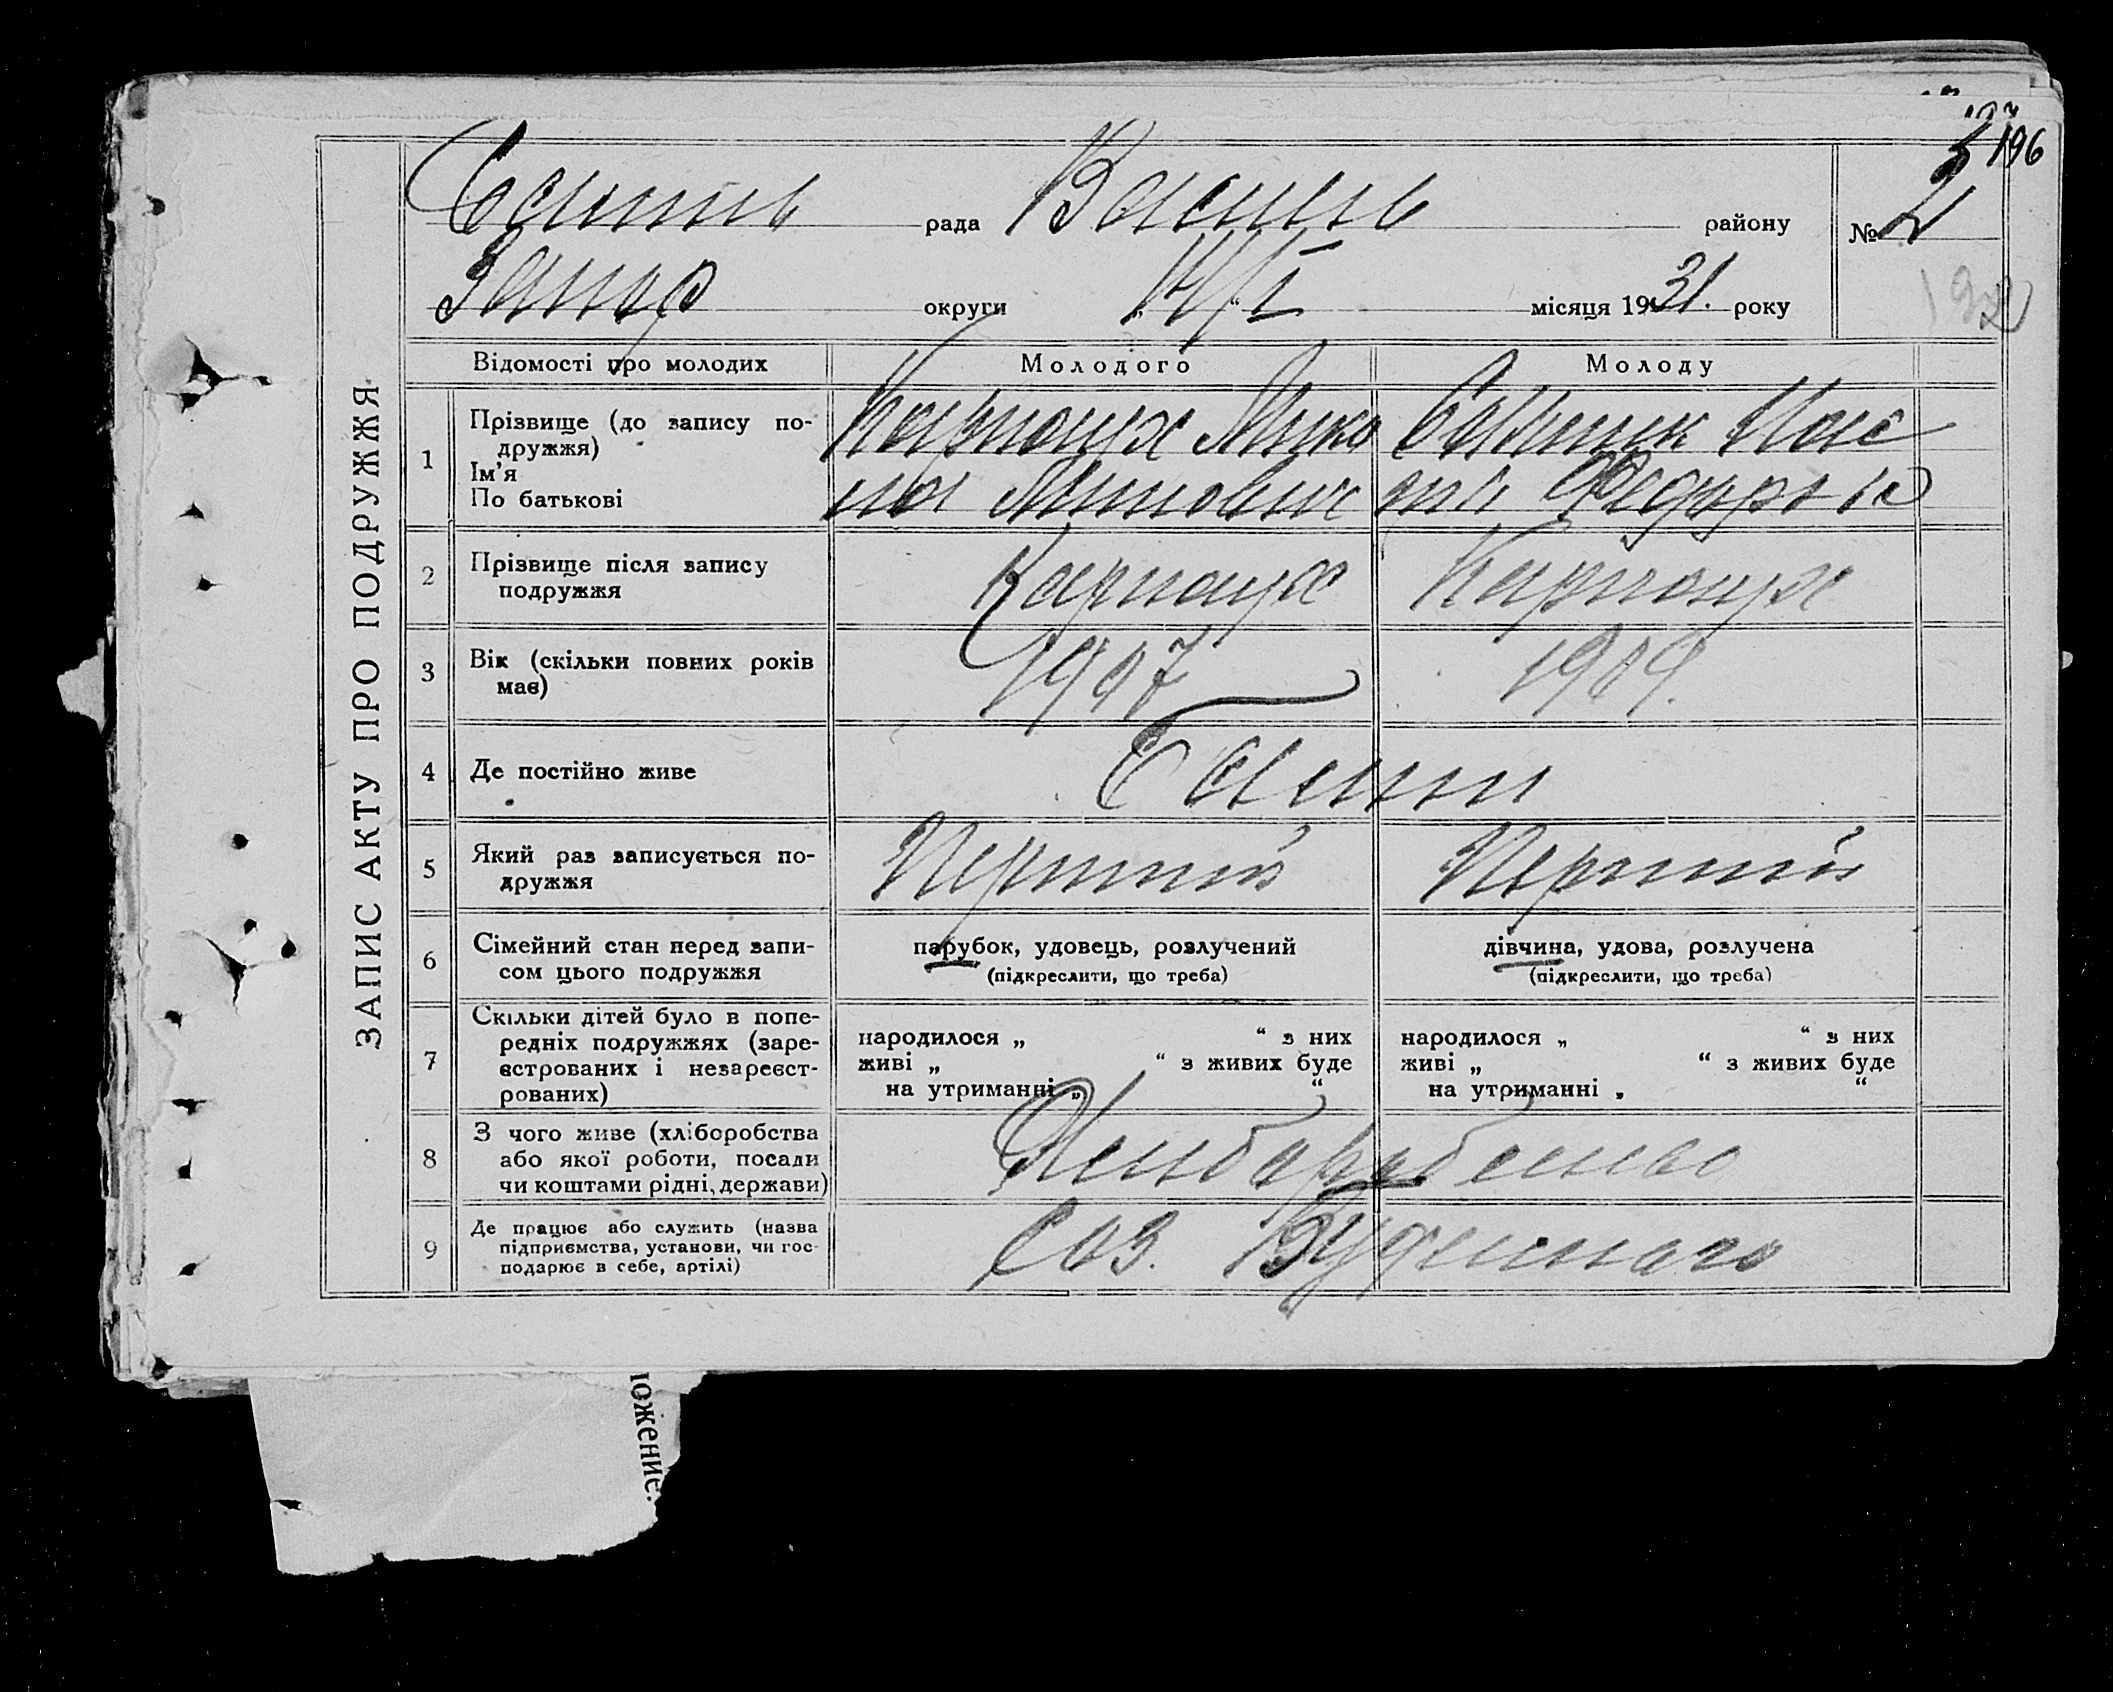 196
рада Василь району № 2
Запор округи „ 14/I “ місяця 1931. року
ЗАПИС АКТУ ПРО ПОДРУЖЖЯ
Відомості про молодих Молодого Молоду
1 Прізвище (до запису по-
дружжя)
Ім’я
По батькові
Карнаух Мико
ла
Федор
2 Прізвище після запису
подружжя
Карнаух Карнаух
3 Вік (скільки повних років
має)
1907 1909.
4 Де постійно живе
5 Який раз записується по-
дружжя
Перший Перший
6 Сімейний стан перед запи-
сом цього подружжя
парубок, удовець, розлучений
(підкреслити, що треба)
дівчина, удова, розлучена
(підкреслити, що треба)
7 Скільки дітей було в попе-
редніх подружжях (заре-
єстрованих і незареєст-
рованих)
народилося „ “ з них
живі „ “ з живих буде
на утриманні „ “
народилося „ “ з них
живі „ “ з живих буде
на утриманні „ “
8 З чого живе (хліборобства
або якої роботи, посади
чи коштами рідні, держави)
9 Де працює або служить (назва
підприємства, установи, чи гос-
подарює в себе, артілі)
Соз. Буденного
ложение.